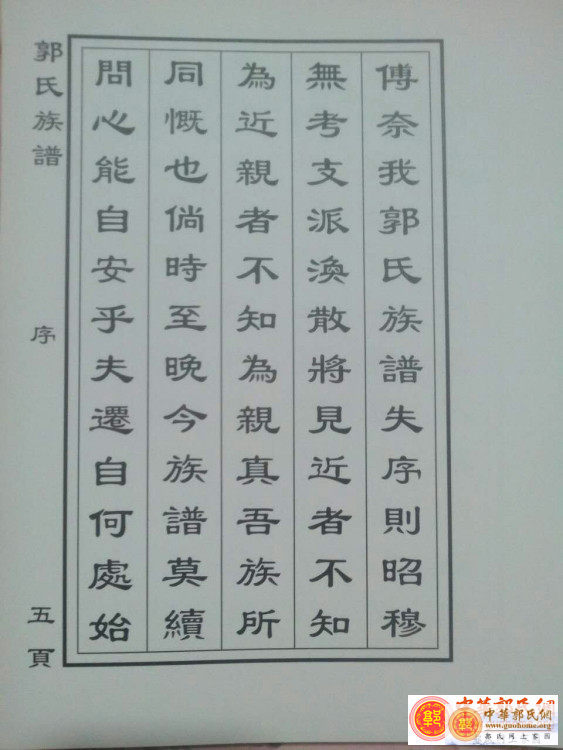 傅奈我郭氏族譜失序則昭穆
無考支派渙散將見近者不知
為近親者不知為親真吾族所
同慨也倘時至晚今族譜莫續
問心能自安乎夫遷自何處始
郭氏族譜
序
五頁
中華郭氏網
中華郭氏網
www.guohome.org
郭氏网上家园